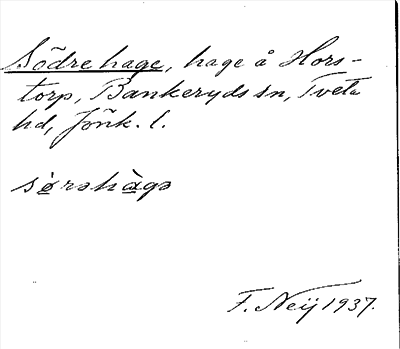 Södrehage, hage å Hors-
torp, Bankeryds sn, Tveta
hd, Jönk. l.
sørəhàgə
F. Neij 1937.